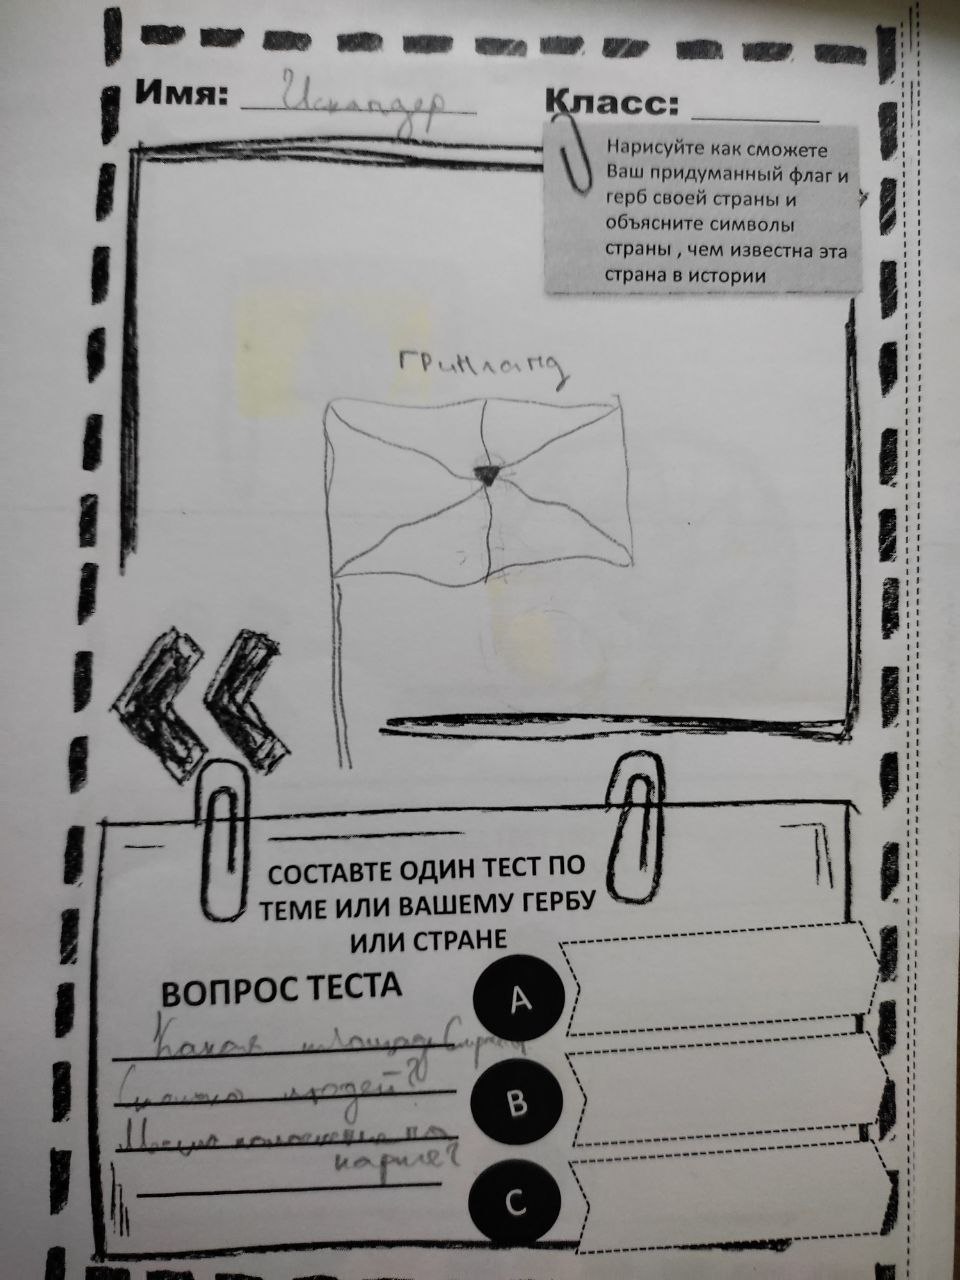 Имя: Искандер
Класс:
Нарисуйте как сможете
Ваш придуманный флаг и
герб своей страны и
объясните символы
страны , чем известна эта
страна в истории
гринланд
СОСТАВТЕ ОДИН ТЕСТ ПО
ТЕМЕ ИЛИ ВАШЕМУ ГЕРБУ
ИЛИ СТРАНЕ
ВОПРОС ТЕСТА
Какая площадь Страны
Сколько людей?
по
карте?
A
B
C